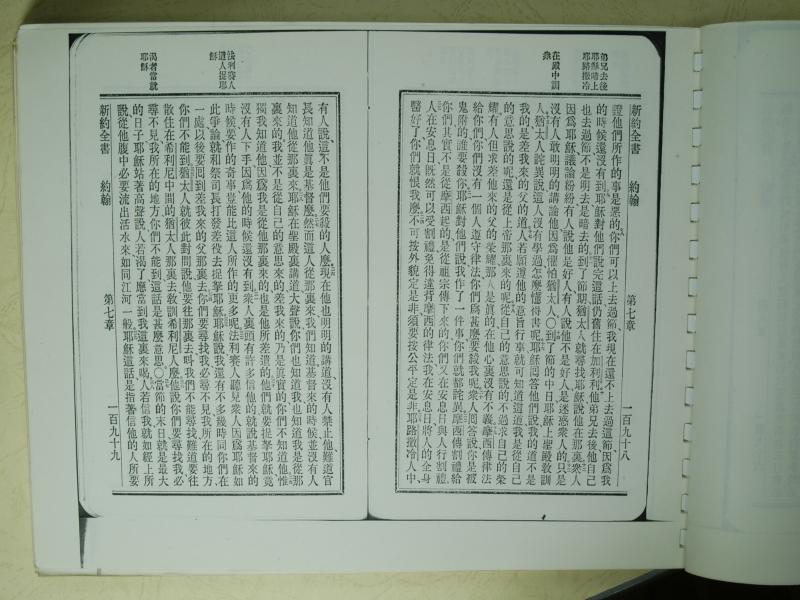 弟兄去後
耶穌暗上
耶路撒冷
在殿中訓
衆
新約全書 約翰 第七章 一百九十八
證他們所作的事是惡的你們可以上去過節我現在還不上去過這節因爲我
的時候還沒有到耶穌對他們說完這話仍舊住在加利利他弟兄去後他自己
也去過節不是明去是暗去的到了節期猶太人就尋找耶穌說他在那裏衆人
因爲耶穌議論紛紛有人說他是好人有人說他不是好人是迷惑衆人的只是
沒有人敢明明的講論他因爲懼怕猶太人〇到了節的中日耶穌上聖殿敎訓
人猶太人詫異說這人沒有學過怎麼懂得書呢耶穌回答他們說我的道不是
我的是差我來的父的道人若願遵他的意旨行事就可知道這道我是從自己
的意思說的呢還是從上帝那裏來的呢從自己的意思說的不過求自己的榮
耀有人但求差他來的父的榮耀那人是眞的在他心裏沒有不義摩西傳律法
給你們你們沒有一個人遵守律法你們爲甚麼要殺我呢衆人回答說你是被
鬼附的誰要殺你耶穌對他們說我作了一件事你們就都詫異摩西傳割禮給
你們其實不是從摩西起的是從祖宗傳下來的你們又在安息日與人行割禮
人在安息日既然可以受割禮免得違背摩西的律法我在安息日將人的全身
醫好了你們就恨我麼不可按外貌定是非須要按公平定是非耶路撒冷人中
法利賽人
遣人捉耶
穌
渴者當就
耶穌
有人說這不是他們要殺的人麼現在他也明明的講道沒有人禁止他難道官
長知道他眞是基督麼然而這人從那裏來我們知道基督來的時候並沒有人
知道他從那裏來耶穌在聖殿裏講道大聲說你們也知道我也知道我是從那
裏來的我並不是從自己的意思來的差我來的乃是眞實的你們不知道他惟
獨我知道他因爲我是從他那裏來的也是他所差遣的他們就要捉拏耶穌竟
沒有人下手因爲他的時候還沒有到衆人裏頭有許多信他的就說基督來的
時候要作的奇事豈能比這人所作的更多呢法利賽人聽見衆人因爲耶穌如
此爭論就和祭司長打發差役去捉拏耶穌耶穌說我還有不多幾時同你們在
一處以後要回到差我來的父那裏去你們要尋找我必尋不見我所在的地方
你們不能到猶太人就彼此對問說他要往那裏去叫我們不能尋找難道要往
散住在希利尼中間的猶太人那裏去敎訓希利尼人麼他說你們要尋找我必
尋不見我所在的地方你們不能到這話是甚麼意思〇當節的末日就是最大
的日子耶穌站著高聲說人若渴了應當到我這裏來喝人若信我就如經上所
說從他腹中必要流出活水來如同江河一般耶穌這話是指著信他的人所要
新約全書 約翰 第七章 一百九十九